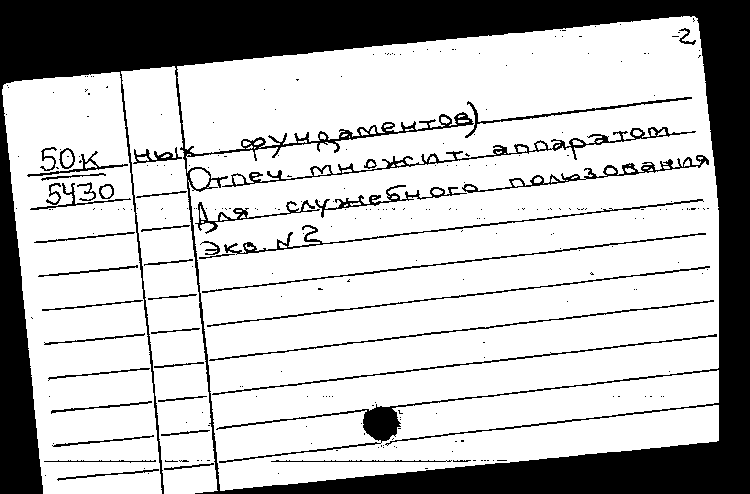 -2
50к
5430
ных фундаментов)
Отпеч. множит. аппаратом.
Для служебного пользования
Экз. N 2